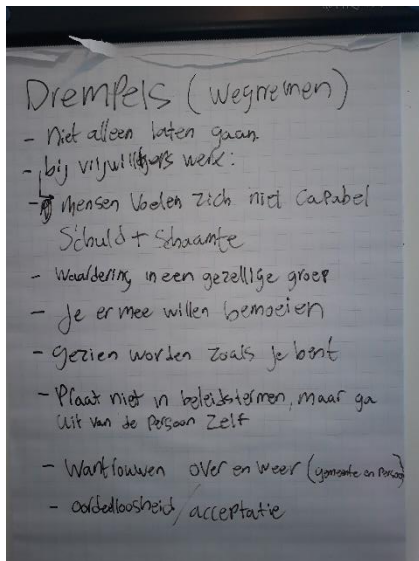 Drempels (wegnemen)
- Niet alleen laten gaan
- bij vrijwilligers werk:
- mensen voelen zich niet capabel
Schuld + Schaamte
- Waardering in een gezellige groep
- Je er mee willen bemoeien
- gezien worden zoals je bent
- Praat niet in beleidstermen, maar ga
uit van de persoon zelf
- Wantrouwen over en weer (gemeente en persoon)
- oordeelloosheid / acceptatie